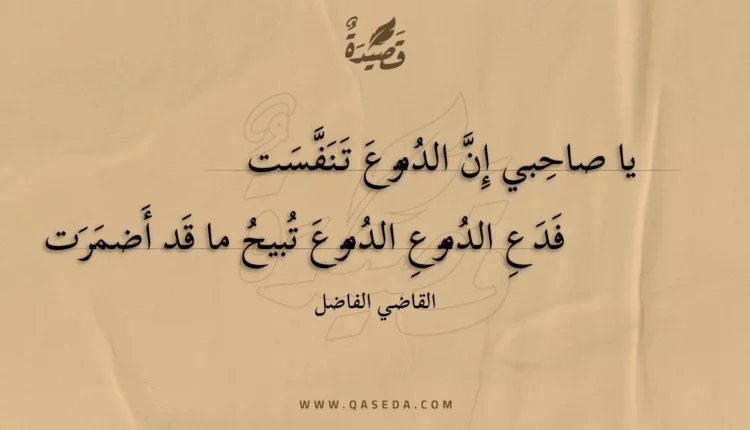 قَصيدَةٌ
يا صاحِبي إِنَّ الدُموعَ تَنَفَّسَت
فَدَعِ الدُموعِ الدُموعَ تُبيحُ ما قَد أَضمَرَت
القاضي الفاضل
WWW.QASEDA.COM